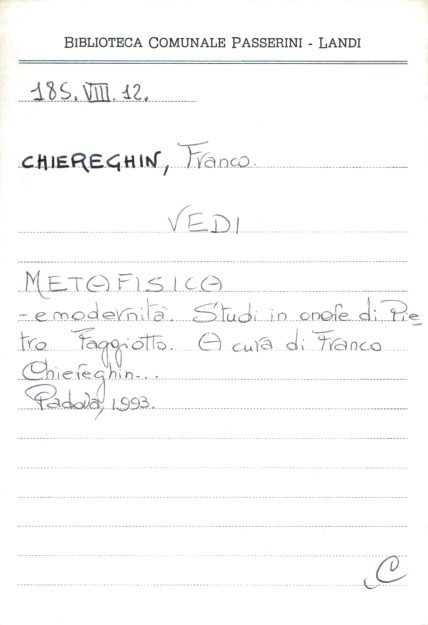 BIBLIOTECA COMUNALE PASSERINI - LANDI
185.VIII.12.
CHIEREGHIN, Franco.
VEDI
METAFISICA
- e modernità. Studi in onore di Pie
tro Faggiotto. A cura di Franco
Chiereghin...
Padova, 1993.
C